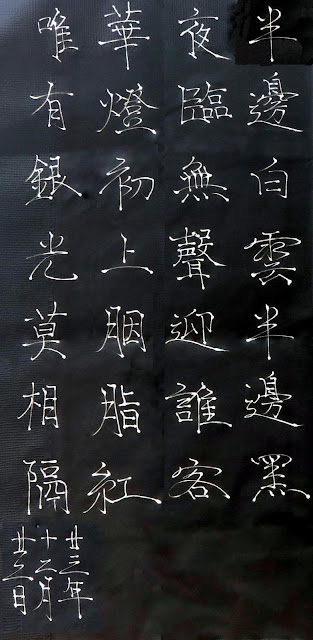 半邊白雲半邊黑
夜臨無聲迎誰客
華燈初上胭脂紅
唯有銀光莫相隔
廿三年
十二月
廿三日